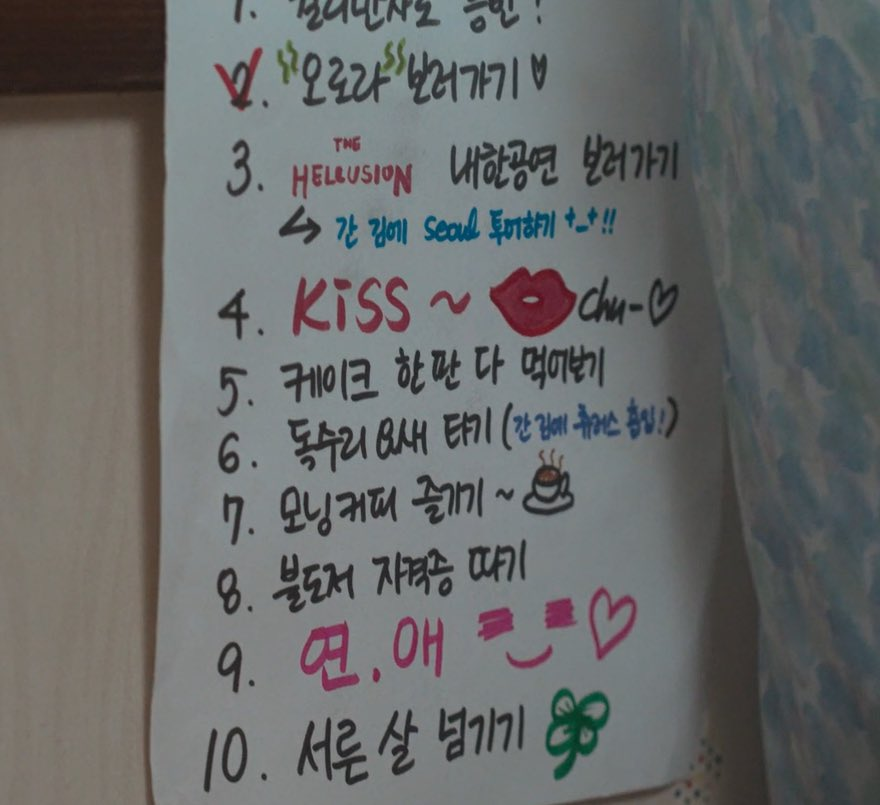 1.
2. 오로라 보러가기
3. THE HELLUSION 내한공연 보러가기
↪ 간 김에 Seoul 투어하기 +_+!!
4. KiSS ~ Chu-♡
5. 케이크 한 판 다 먹어보기
6. 독수리 요새 타기 (간 김에 츄러스 흡입!)
7. 모닝커피 즐기기~
8. 불도저 자격증 따기
9. 연.애 =‿= ♡
10. 서른 살 넘기기